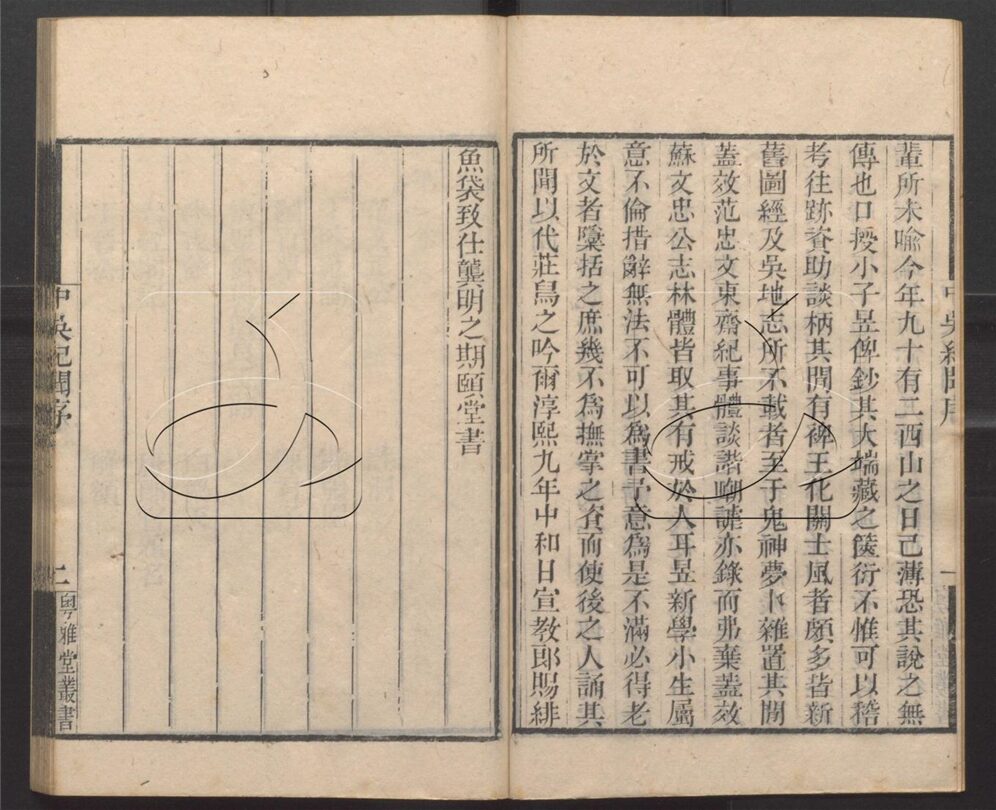 輩所未喻今年九十有二西山之日已薄恐其說之無
傳也口授小子昱俾鈔其大端藏之篋衍不惟可以稽
考往跡資助談柄其間有裨王化關士風者頗多皆新
舊圖經及吳地志所不載者至于鬼神夢卜雜置其間
蓋效范忠文東齋紀事體談諧嘲謔亦錄而弗棄蓋效
蘇文忠公志林體皆取其有戒於人耳昱新學小生屬
意不倫措辭無法不可以為書予意為是不滿必得老
於文者櫽括之庶幾不為撫掌之資而使後之人誦其
所聞以代莊舄之吟爾淳熙九年中和日宣教郎賜緋
魚袋致仕龔明之期頤堂書
中吳紀聞序
二
粵雅堂叢書